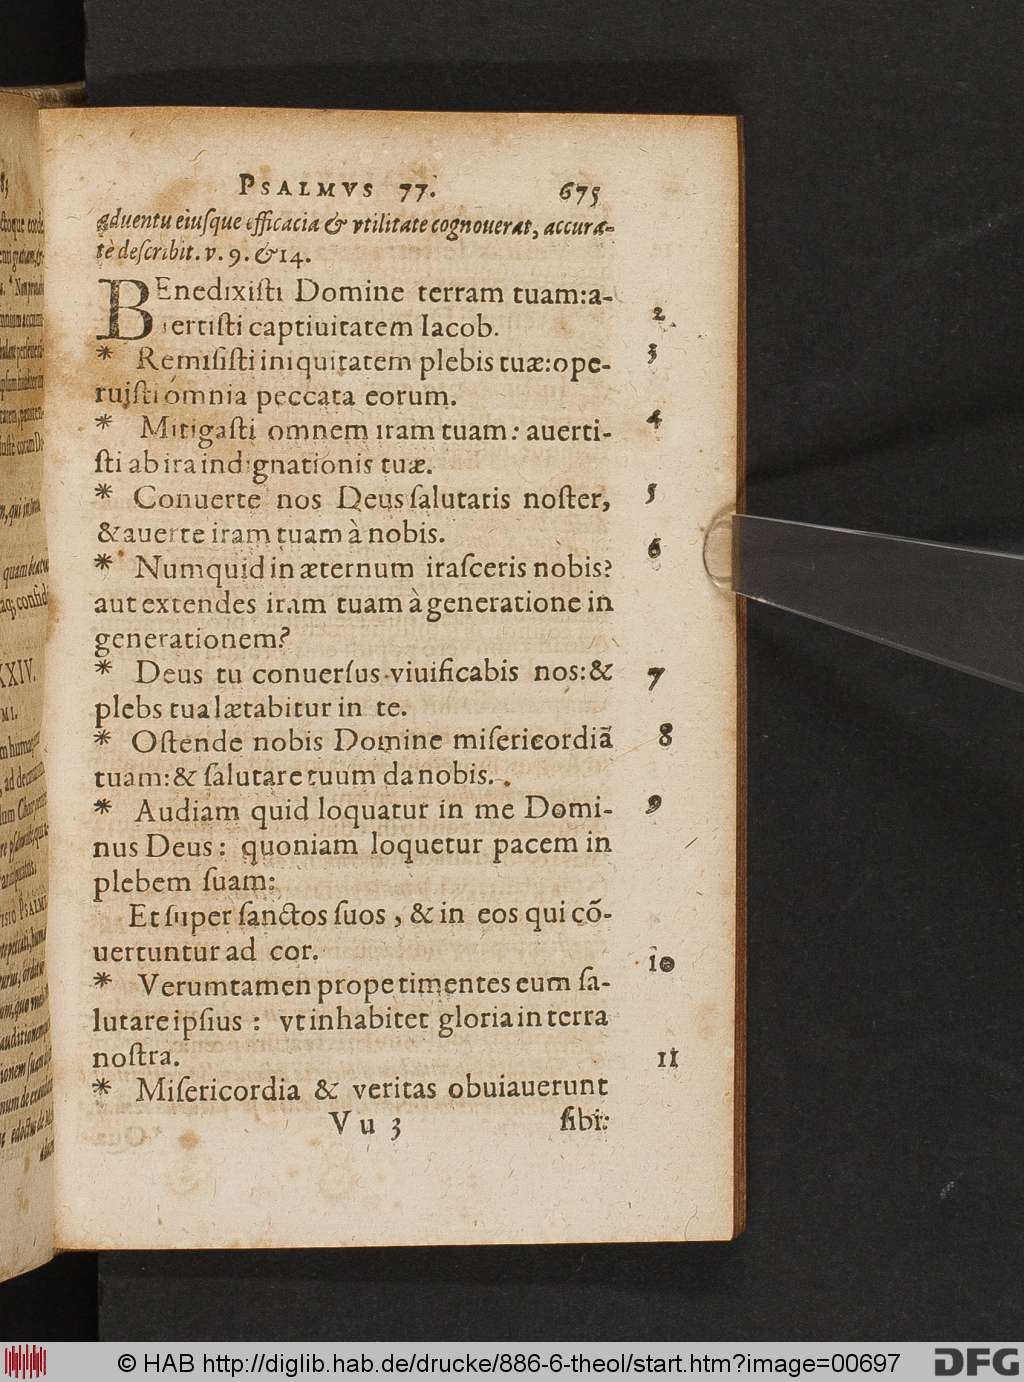 PSALMVS 77. 675
aduentu eiuſque efficacia & vtilitate cognouerat, accura-
tè deſcribit. v. 9. & 14.
BEnedixiſti Domine terram tuam:a-
uertiſti captiuitatem Iacob. 2
* Remiſiſti iniquitatem plebis tuæ:ope- 3
ruiſti omnia peccata eorum.
* Mitigaſti omnem iram tuam: auerti- 4
ſti ab ira indignationis tuæ.
* Conuerte nos Deus ſalutaris noſter, 5
& auerte iram tuam à nobis.
* Numquid in æternum iraſceris nobis? 6
aut extendes iram tuam à generatione in
generationem?
* Deus tu conuerſus viuificabis nos:& 7
plebs tua lætabitur in te.
* Oſtende nobis Domine miſericordiã 8
tuam:& ſalutare tuum da nobis.
* Audiam quid loquatur in me Domi- 9
nus Deus: quoniam loquetur pacem in
plebem ſuam:
Et ſuper ſanctos ſuos, & in eos qui cõ-
uertuntur ad cor.
* Verumtamen prope timentes eum ſa- 10
lutare ipſius: vt inhabitet gloria in terra
noſtra.
* Miſericordia & veritas obuiauerunt 11
Vu 3 ſibi:
© HAB http://diglib.hab.de/drucke/886-6-theol/start.htm?image=00697
DFG